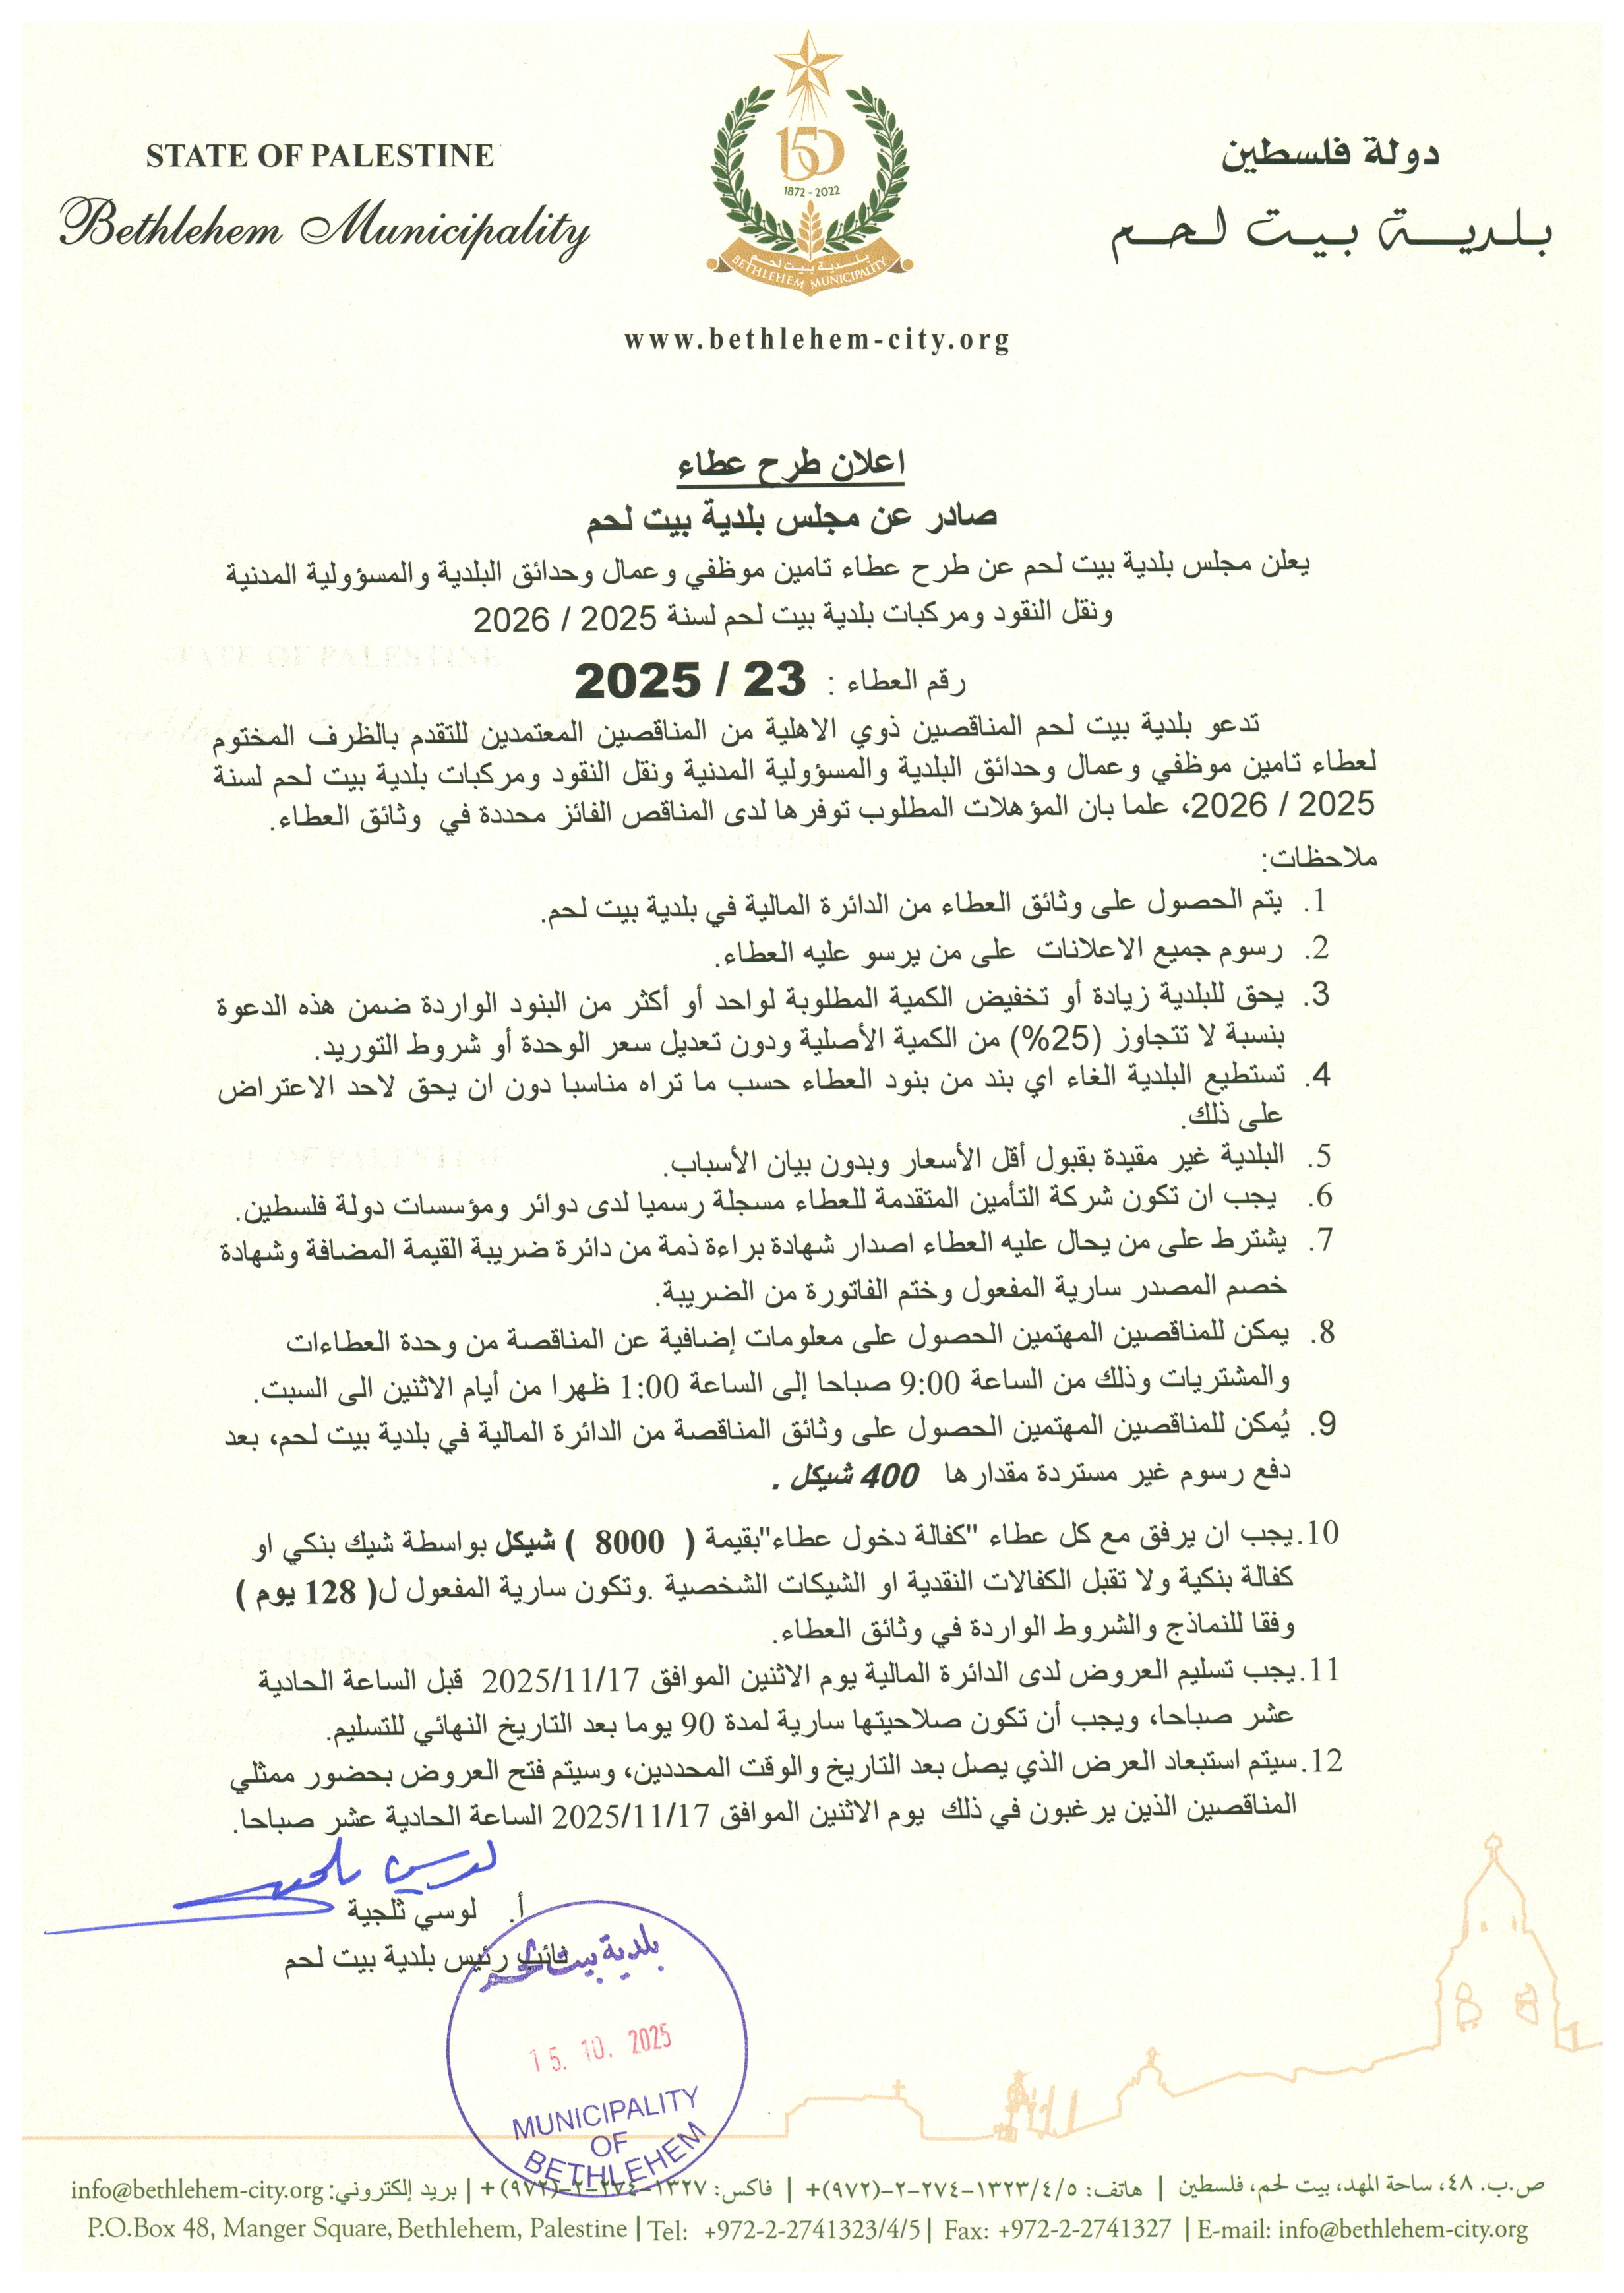 STATE OF PALESTINE
Bethlehem Municipality
دولة فلسطين
بلدية بيت لحم
150
1872 - 2022
بلدية بيت لحم
BETHLEHEM MUNICIPALITY
www.bethlehem-city.org
اعلان طرح عطاء
صادر عن مجلس بلدية بيت لحم
يعلن مجلس بلدية بيت لحم عن طرح عطاء تامين موظفي وعمال وحدائق البلدية والمسؤولية المدنية
ونقل النقود ومركبات بلدية بيت لحم لسنة 2025 / 2026
رقم العطاء : 23 / 2025
تدعو بلدية بيت لحم المناقصين ذوي الاهلية من المناقصين المعتمدين للتقدم بالظرف المختوم
لعطاء تامين موظفي وعمال وحدائق البلدية والمسؤولية المدنية ونقل النقود ومركبات بلدية بيت لحم لسنة
2025 / 2026، علما بان المؤهلات المطلوب توفرها لدى المناقص الفائز محددة في وثائق العطاء.
ملاحظات:
1. يتم الحصول على وثائق العطاء من الدائرة المالية في بلدية بيت لحم.
2. رسوم جميع الاعلانات على من يرسو عليه العطاء.
3. يحق للبلدية زيادة أو تخفيض الكمية المطلوبة لواحد أو أكثر من البنود الواردة ضمن هذه الدعوة
بنسبة لا تتجاوز (25%) من الكمية الأصلية ودون تعديل سعر الوحدة أو شروط التوريد.
4. تستطيع البلدية الغاء اي بند من بنود العطاء حسب ما تراه مناسبا دون ان يحق لاحد الاعتراض
على ذلك.
5. البلدية غير مقيدة بقبول أقل الأسعار وبدون بيان الأسباب.
6. يجب ان تكون شركة التأمين المتقدمة للعطاء مسجلة رسميا لدى دوائر ومؤسسات دولة فلسطين.
7. يشترط على من يحال عليه العطاء اصدار شهادة براءة ذمة من دائرة ضريبة القيمة المضافة وشهادة
خصم المصدر سارية المفعول وختم الفاتورة من الضريبة.
8. يمكن للمناقصين المهتمين الحصول على معلومات إضافية عن المناقصة من وحدة العطاءات
والمشتريات وذلك من الساعة 9:00 صباحا إلى الساعة 1:00 ظهرا من أيام الاثنين الى السبت.
9. يُمكن للمناقصين المهتمين الحصول على وثائق المناقصة من الدائرة المالية في بلدية بيت لحم، بعد
دفع رسوم غير مستردة مقدارها 400 شيكل .
10. يجب ان يرفق مع كل عطاء "كفالة دخول عطاء"بقيمة ( 8000 ) شيكل بواسطة شيك بنكي او
كفالة بنكية ولا تقبل الكفالات النقدية او الشيكات الشخصية .وتكون سارية المفعول ل( 128 يوم )
وفقا للنماذج والشروط الواردة في وثائق العطاء.
11. يجب تسليم العروض لدى الدائرة المالية يوم الاثنين الموافق 2025/11/17 قبل الساعة الحادية
عشر صباحا، ويجب أن تكون صلاحيتها سارية لمدة 90 يوما بعد التاريخ النهائي للتسليم.
12. سيتم استبعاد العرض الذي يصل بعد التاريخ والوقت المحددين، وسيتم فتح العروض بحضور ممثلي
المناقصين الذين يرغبون في ذلك يوم الاثنين الموافق 2025/11/17 الساعة الحادية عشر صباحا.
أ. لوسي ثلجية
نائب رئيس بلدية بيت لحم
بلدية بيت لحم
15. 10. 2025
MUNICIPALITY
OF
BETHLEHEM
ص.ب. ٤٨، ساحة المهد، بيت لحم، فلسطين | هاتف: ٥/٤/١٣٢٣-٢٧٤-٢-(٩٧٢)+ | فاكس: ١٣٢٧-٢٧٤-٢-(٩٧٢)+ | بريد إلكتروني: info@bethlehem-city.org
P.O.Box 48, Manger Square, Bethlehem, Palestine | Tel: +972-2-2741323/4/5 | Fax: +972-2-2741327 | E-mail: info@bethlehem-city.org